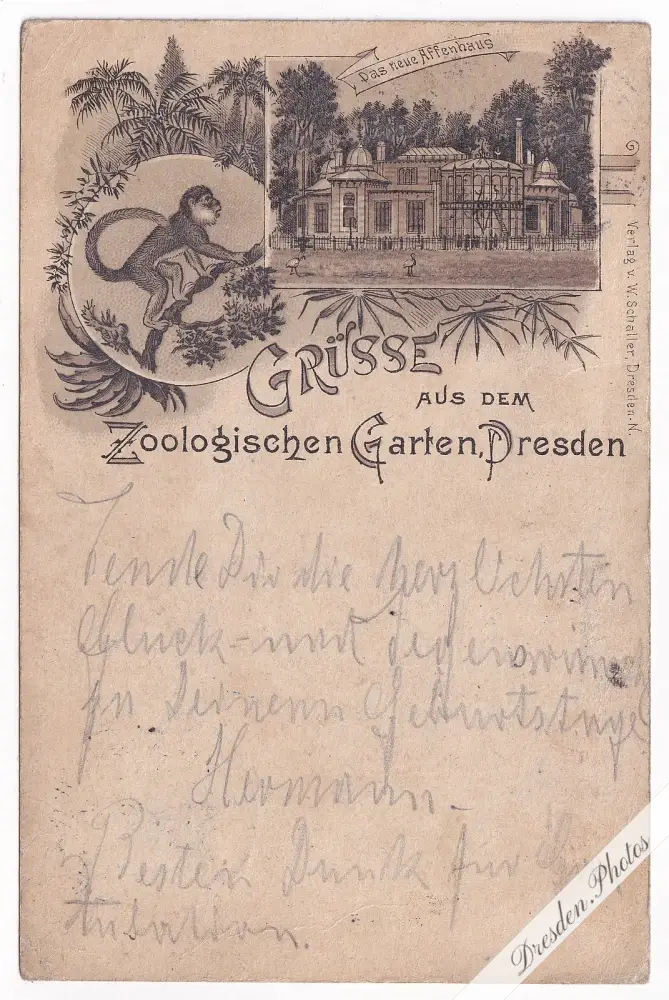 Das neue Affenhaus
GRÜSSE
AUS DEM
Zoologischen Garten, Dresden
Verlag v. W. Schaller, Dresden-N.
Sende Dir die herzlichsten
Glück- und Segenswünsch
zu Deinem Geburtstage
Hermann.
Besten Dank für
tulation.
Dresden.Photos